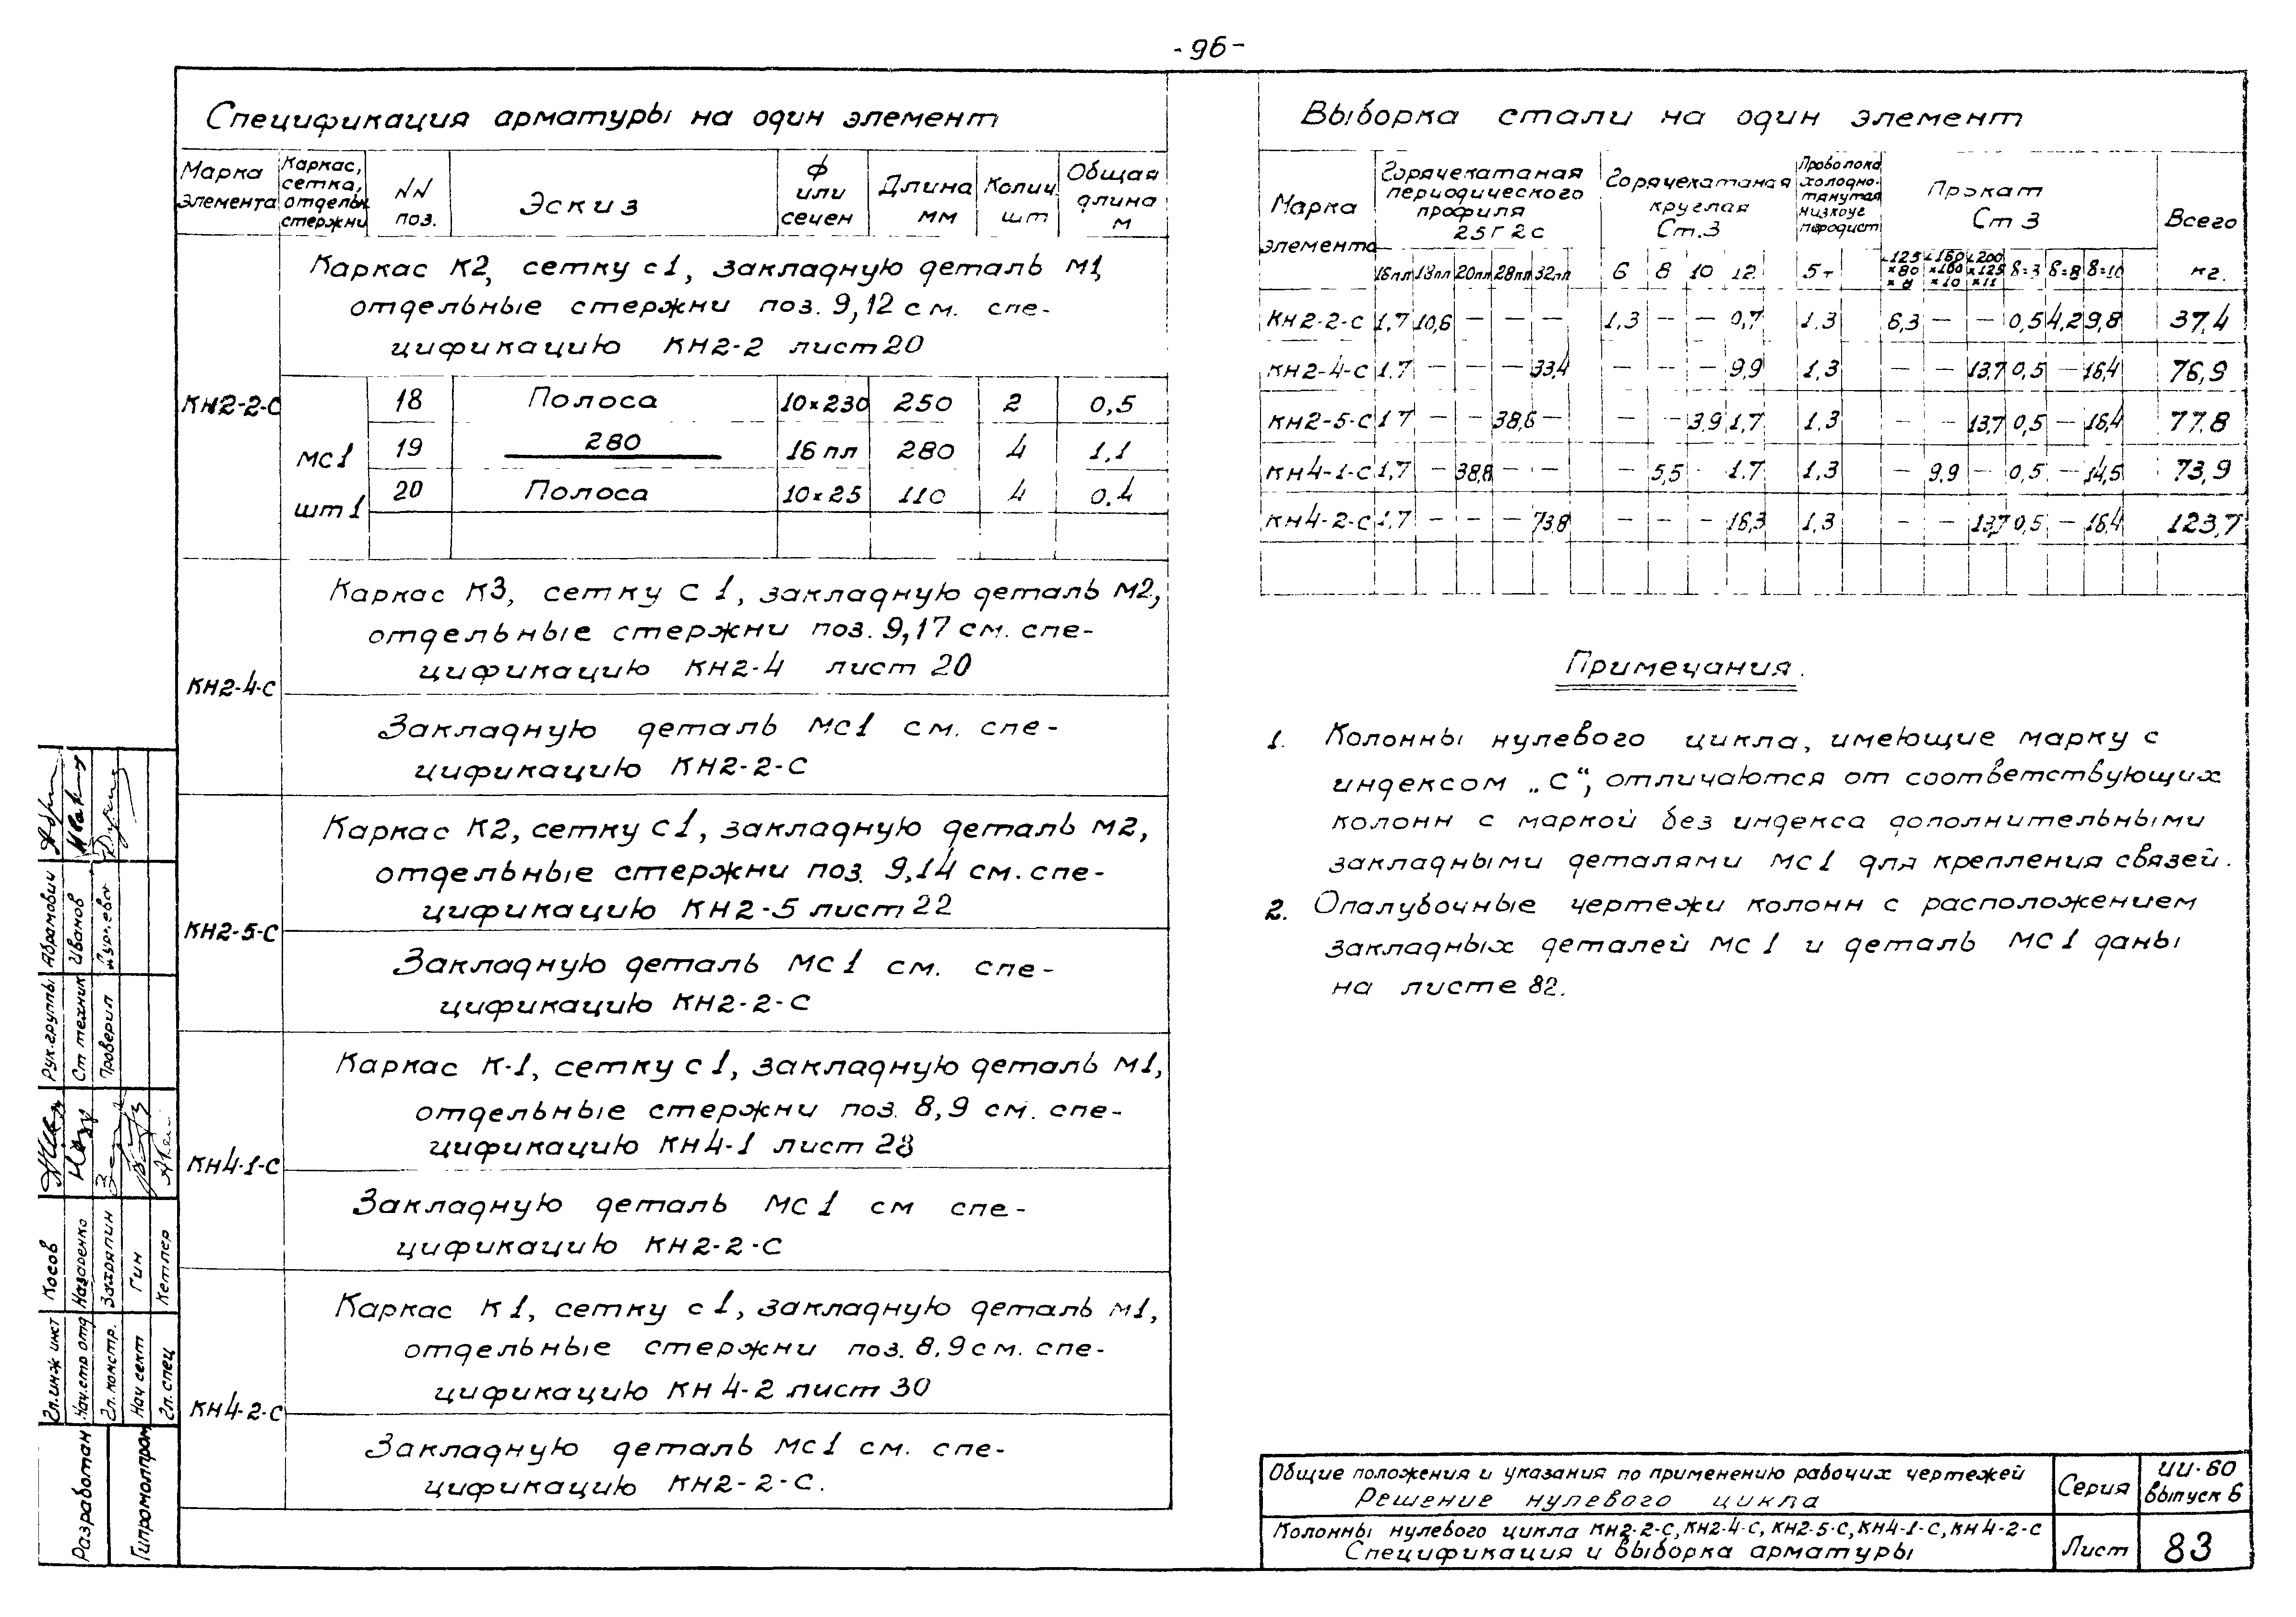 -96-
Спецификация арматуры на один элемент
Марка элемента | Каркас, сетка, отдельн. стержни | NN поз. | Эскиз | ф или сечен | Длина мм | Колич. шт | Общая длина м
КН2-2-С
Каркас К2, сетку с1, закладную деталь М1,
отдельные стержни поз. 9,12 см. спе-
цификацию КН2-2 лист 20
МС1
шт 1
18 | Полоса | 10×230 | 250 | 2 | 0,5
19 | 280 | 16 пл | 280 | 4 | 1,1
20 | Полоса | 10×25 | 110 | 4 | 0,4
КН2-4-С
Каркас К3, сетку С1, закладную деталь М2,
отдельные стержни поз. 9,17 см. спе-
цификацию КН2-4 лист 20
Закладную деталь МС1 см. спе-
цификацию КН2-2-С
КН2-5-С
Каркас К2, сетку С1, закладную деталь М2,
отдельные стержни поз. 9,14 см. спе-
цификацию КН2-5 лист 22
Закладную деталь МС1 см. спе-
цификацию КН2-2-С
КН4-1-С
Каркас К-1, сетку с1, закладную деталь М1,
отдельные стержни поз. 8,9 см. спе-
цификацию КН4-1 лист 28
Закладную деталь МС1 см спе-
цификацию КН2-2-С
КН4-2-С
Каркас К1, сетку с1, закладную деталь М1,
отдельные стержни поз. 8,9 см. спе-
цификацию КН4-2 лист 30
Закладную деталь МС1 см. спе-
цификацию КН2-2-С.
Выборка стали на один элемент
Марка элемента | Горячекатаная периодического профиля 25Г2с | Горячекатаная круглая Ст.3 | Проволока холодно-тянутая низкоуглеродист | Прокат Ст 3 | Всего
16пл | 18пл | 20пл | 28пл | 32пл | 6 | 8 | 10 | 12 | 5т | ∟125×80×8 | ∟160×160×10 | ∟200×125×11 | δ=3 | δ=8 | δ=10 | кг.
КН2-2-С | 1,7 | 10,6 | — | — | — | 1,3 | — | — | 0,7 | 1,3 | 6,3 | — | — | 0,5 | 4,2 | 9,8 | 37,4
КН2-4-С | 1,7 | — | — | — | 33,4 | — | — | — | 9,9 | 1,3 | — | — | 13,7 | 0,5 | — | 16,4 | 76,9
КН2-5-С | 1,7 | — | — | 38,6 | — | — | — | 3,9 | 1,7 | 1,3 | — | — | 13,7 | 0,5 | — | 16,4 | 77,8
КН4-1-С | 1,7 | — | 38,8 | — | — | — | 5,5 | - | 1,7 | 1,3 | — | 9,9 | — | 0,5 | — | 14,5 | 73,9
КН4-2-С | 1,7 | — | — | — | 73,8 | — | — | — | 16,3 | 1,3 | — | — | 13,7 | 0,5 | — | 16,4 | 123,7
Примечания.
1. Колонны нулевого цикла, имеющие марку с
индексом „С“, отличаются от соответствующих
колонн с маркой без индекса дополнительными
закладными деталями МС1 для крепления связей.
2. Опалубочные чертежи колонн с расположением
закладных деталей МС1 и деталь МС1 даны
на листе 82.
Общие положения и указания по применению рабочих чертежей
Решение нулевого цикла
Серия
ИИ-60
выпуск 6
Колонны нулевого цикла КН2-2-С, КН2-4-С, КН2-5-С, КН4-1-С, КН4-2-С
Спецификация и выборка арматуры
Лист
83
Рук. группы Абрамович
Ст техник Иванов
Проверил
Гл. инж инст Косов
Нач. стр отд Назаренко
Гл. констр.
Нач сект Гин
Гл. спец Кетлер
Разработан
Гипромолпром